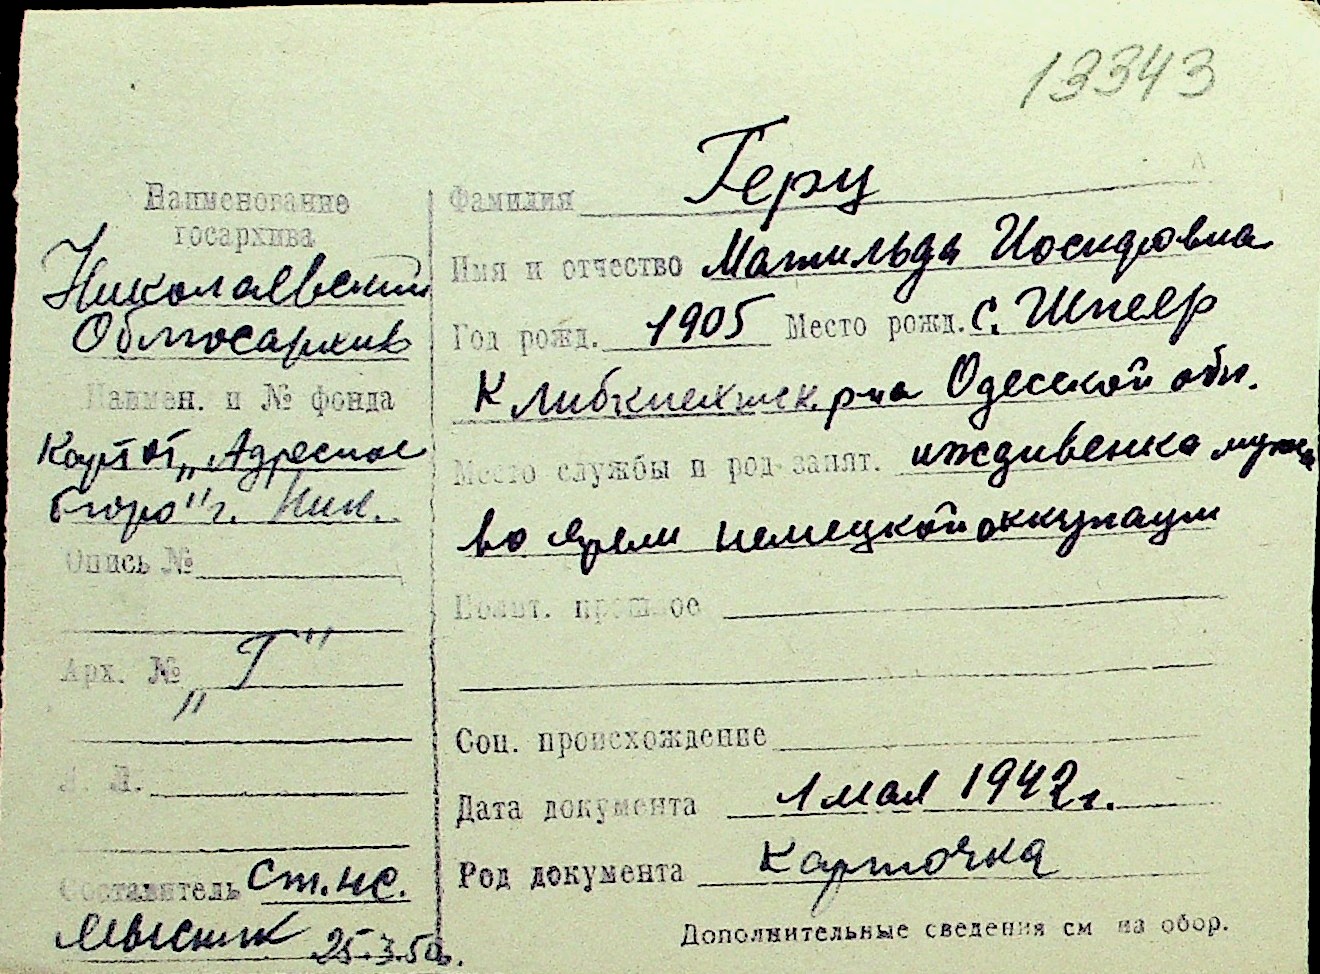 13343
Наименование
госархива
Николаевский
Облгосархив
Наимен. и № фонда
Картот. „Адресное
бюро" г. Ник.
Опись №
Арх. № „Г"
Л. Л.
Составитель ст. нс.
25.3.50г.
Фамилия Герц
Имя и отчество Матильда Иосифовна
Год рожд. 1905 Место рожд. с. Шпеер
К Либкнехтск. р-на Одесской обл.
Место службы и род занят. иждивенка мужа
во врем немецкой оккупации
Полит. прошлое
Соц. происхождение
Дата документа 1 мая 1942 г.
Род документа карточка
Дополнительные сведения см на обор.